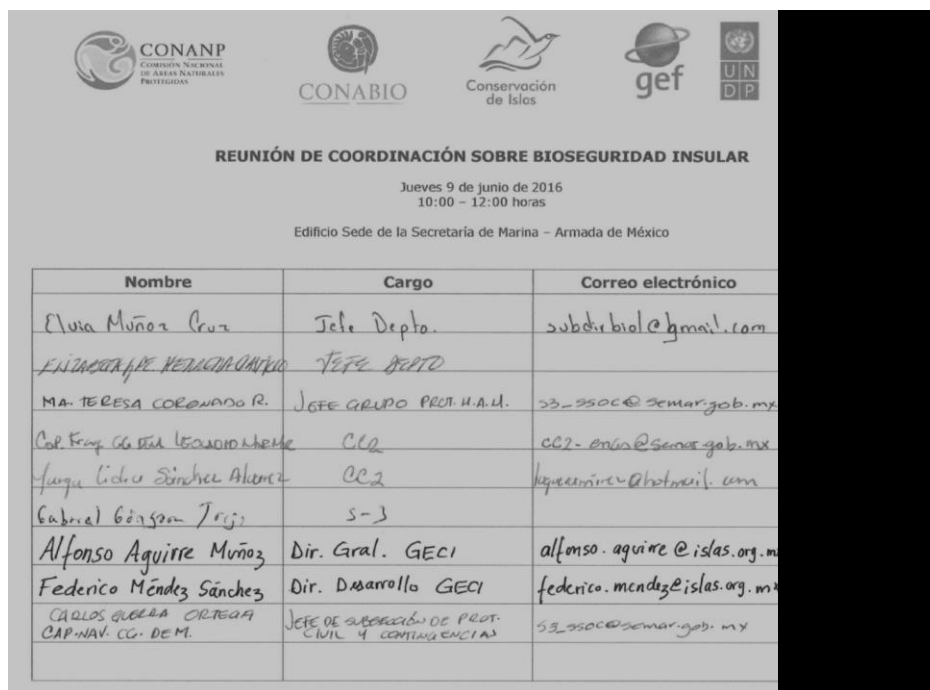 CONANP
COMISIÓN NACIONAL
DE ÁREAS NATURALES
PROTEGIDAS
CONABIO
Conservación
de Islas
gef
U N
D P
REUNIÓN DE COORDINACIÓN SOBRE BIOSEGURIDAD INSULAR
Jueves 9 de junio de 2016
10:00 – 12:00 horas
Edificio Sede de la Secretaría de Marina – Armada de México
Nombre Cargo Correo electrónico
Elvia Muñoz Cruz Jefe Depto. subdirbiol@gmail.com
JEFE DEPTO
MA. TERESA CORONADO R. JEFE GRUPO PROT. H.A.M. s3_ssoc@semar.gob.mx
CC2 @semar.gob.mx
Sánchez CC2 @hotmail.com
Gabriel S-3
Alfonso Aguirre Muñoz Dir. Gral. GECI alfonso.aguirre@islas.org.m
Federico Méndez Sánchez Dir. Desarrollo GECI federico.mendez@islas.org.mx
CARLOS GUERRA ORTEGA JEFE DE SUBSECCIÓN DE PROT.
CAP. NAV. CG. DEM. CIVIL Y CONTINGENCIAS s3_ssoc@semar.gob.mx